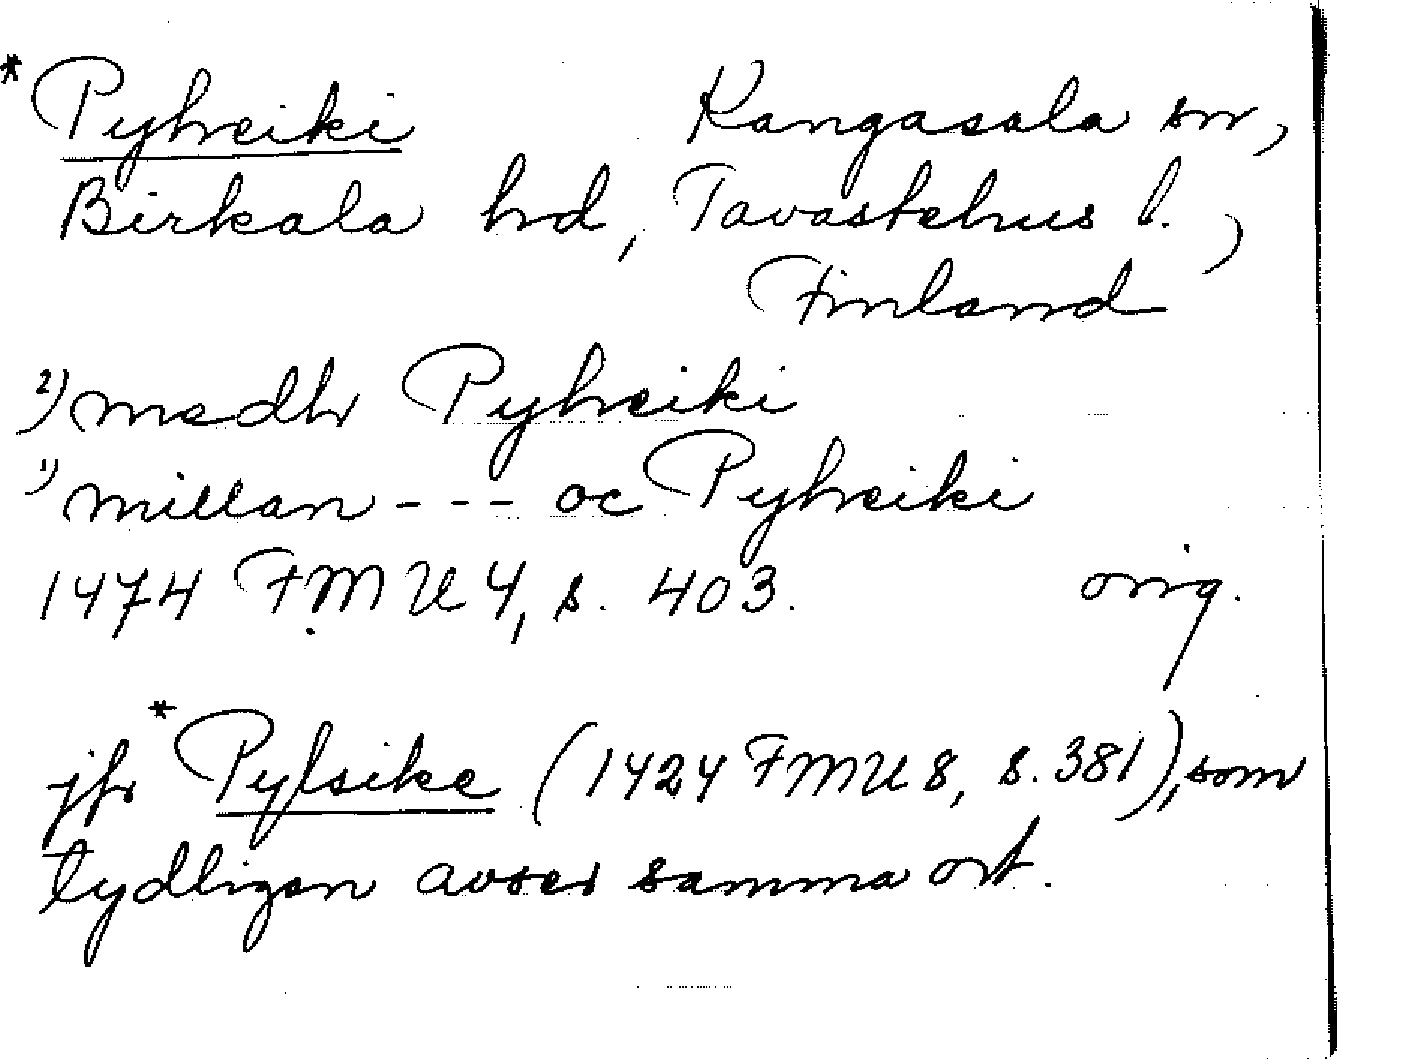 *Pyheiki Kangasala sn,
Birkala hd, Tavastehus l.,
Finland
2) medh Pyheiki
1) millan --- oc Pyheiki
1474 FMU 4, s. 403. orig.
jfr *Pylsike (1424 FMU 8, s. 381), som
tydligen avser samma ort.